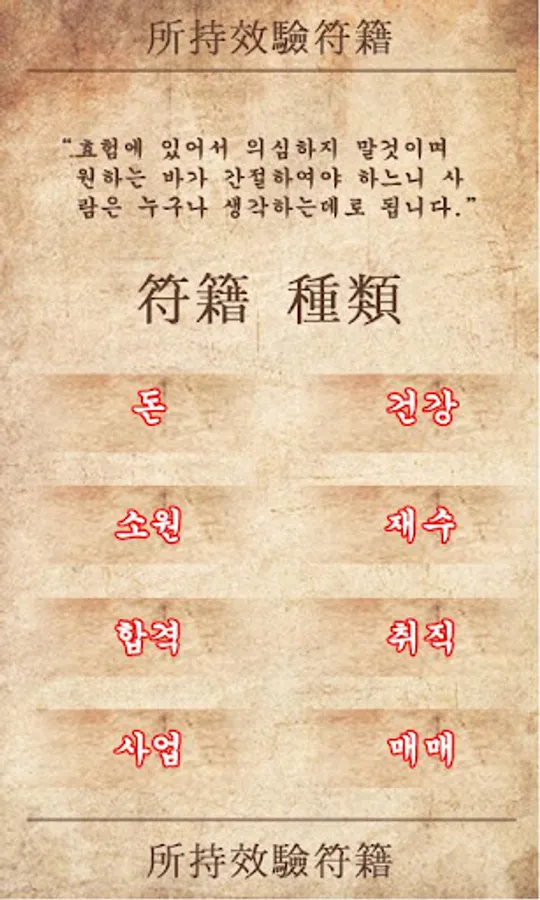 所持效驗符籍
“효험에 있어서 의심하지 말것이며
원하는 바가 간절하여야 하느니 사
람은 누구나 생각하는데로 됩니다.”
符籍 種類
돈 건강
소원 재수
합격 취직
사업 매매
所持效驗符籍